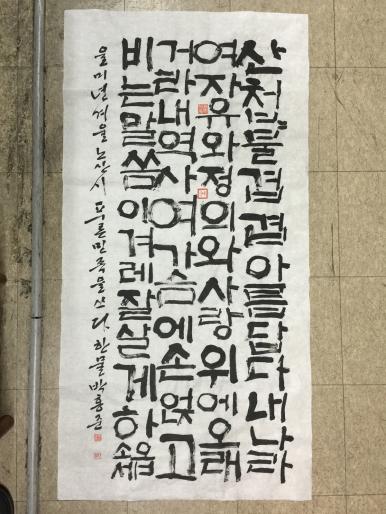 산첩〃물겹겹아름답다내나라
여자유와정의와사랑위에오래
거라내역사여가슴에손얹고
비는말씀이겨레잘살게하옵소서
을미년겨울노산시 푸른민족을쓰다 한물박홍준